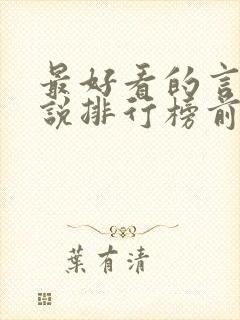 最好看的言
說排行榜前
葉有清